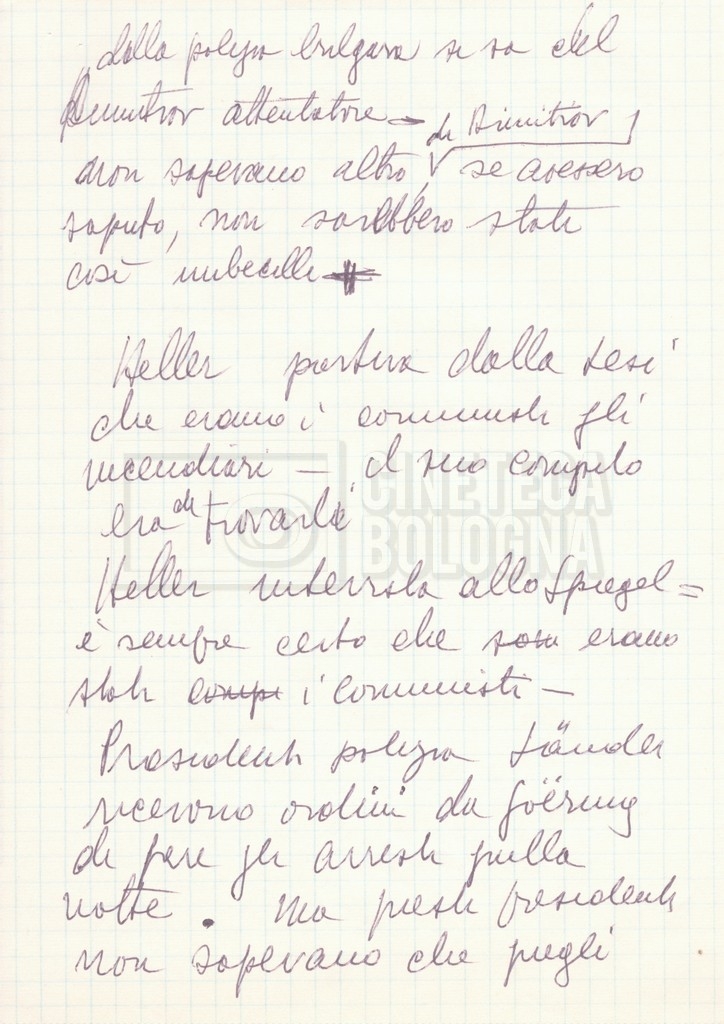 dalla polizia bulgara si sa del
Dimitrov attentatore –
di Dimitrov
non sapevano altro, se avessero
saputo, non sarebbero stati
così imbecilli
Heller partiva dalla tesi
che erano i comunisti gli
incendiari – il suo compito
era di trovarli
Heller intervista allo Spiegel =
è sempre certo che son erano
stati comp i comunisti –
Presidenti polizia Länder
ricevono ordini da Göering
di fare gli arresti quella
notte. Ma questi presidenti
non sapevano che quegli
CINETECA
BOLOGNA